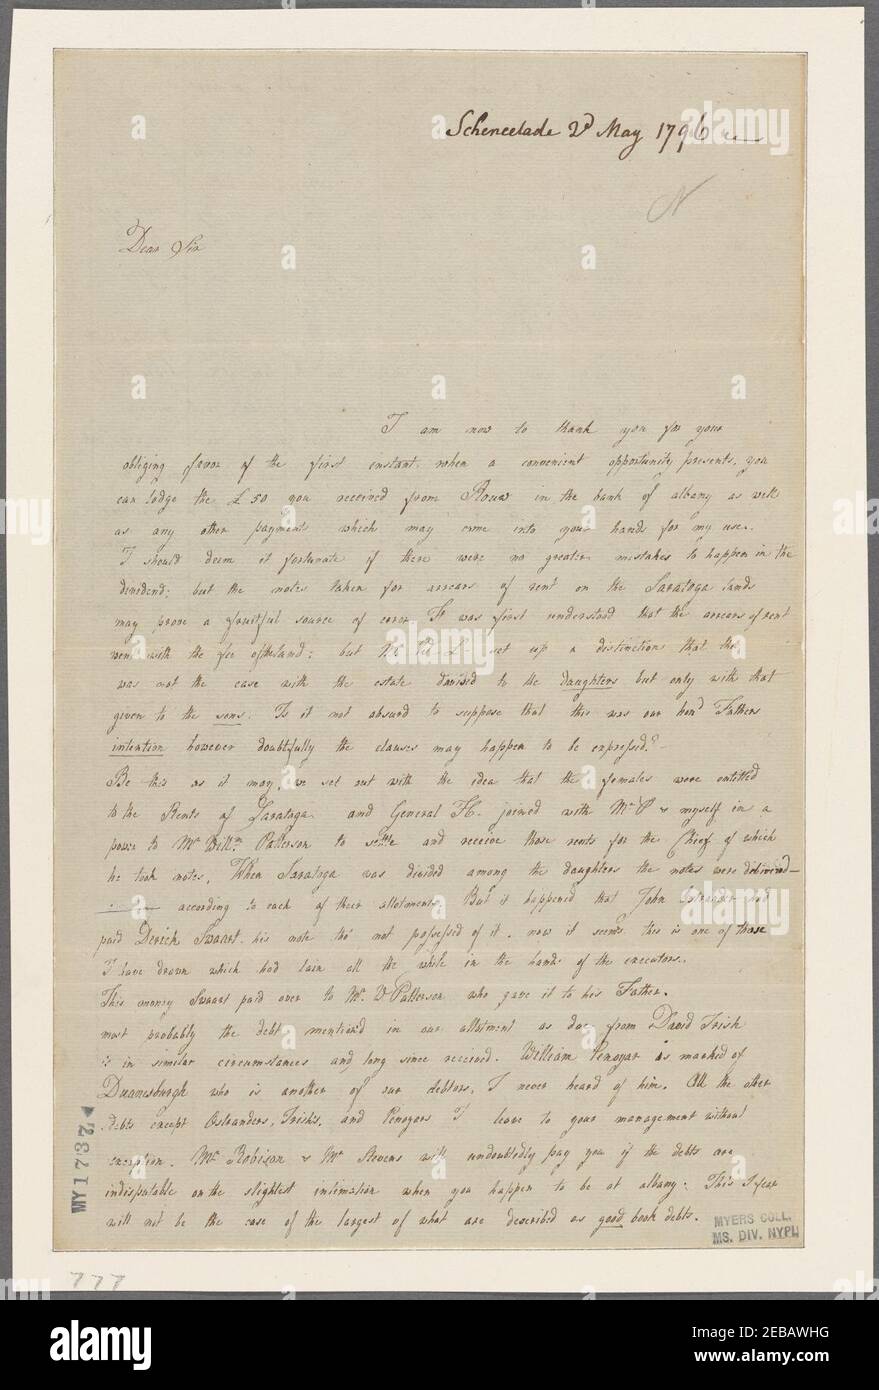 Schencetade 2d May 1796
N
Dear Sir
I am now to thank you for your
obliging favor of the first instant. when a convenient opportunity presents, you
can lodge the £ 50 you received from Rouw in the bank of albany as well
as any other payments which may come into your hands for my use.
I should deem it fortunate if there were no greater mistakes to happen in the
dividend; but the notes taken for arrears of rent on the Saratoga lands
may prove a fruitful source of error. It was first understood that the arrears of rent
went with the fee of the land; but set up a distinction that the
was not the case with the estate devised to the daughters but only with that
given to the sons. Is it not absurd to suppose that this was our hond Fathers
intention however doubtfully the clauses may happen to be expressed?
Be this as it may, we set out with the idea that the females were entitled
to the Rents of Saratoga. and General H. joined with Mr P & myself in a
power to Mr Willm Patterson to settle and receive those rents for the Chief of which
he took notes. When Saratoga was divided among the daughters the notes were delivered
according to each of their allotments. But it happened that John Ostrander had
paid Derick Swaart his note tho' not possessed of it. now it seems this is one of those
I have drawn which had lain all the while in the hands of the executors.
This money Swaart paid over to Mr. V Patterson who gave it to his Father.
most probably the debt mention'd in our allotment as due from David Irish
is in similar circumstances and long since received. William Penoyar is marked of
Duanesburgh who is another of our debtors, I never heard of him. All the other
debts except Ostranders, Irish's, and Penoyers I leave to your management without
exception. Mr Robison & Mr Stevens will undoubtedly pay you if the debts are
indisputable on the slightest intimation when you happen to be at albany. This I fear
will not be the case of the largest of what are described as good book debts.
MYERS COLL.
MS. DIV. NYPL
MY1737
777
alamy
Image ID: 2EBAWHG
www.alamy.com